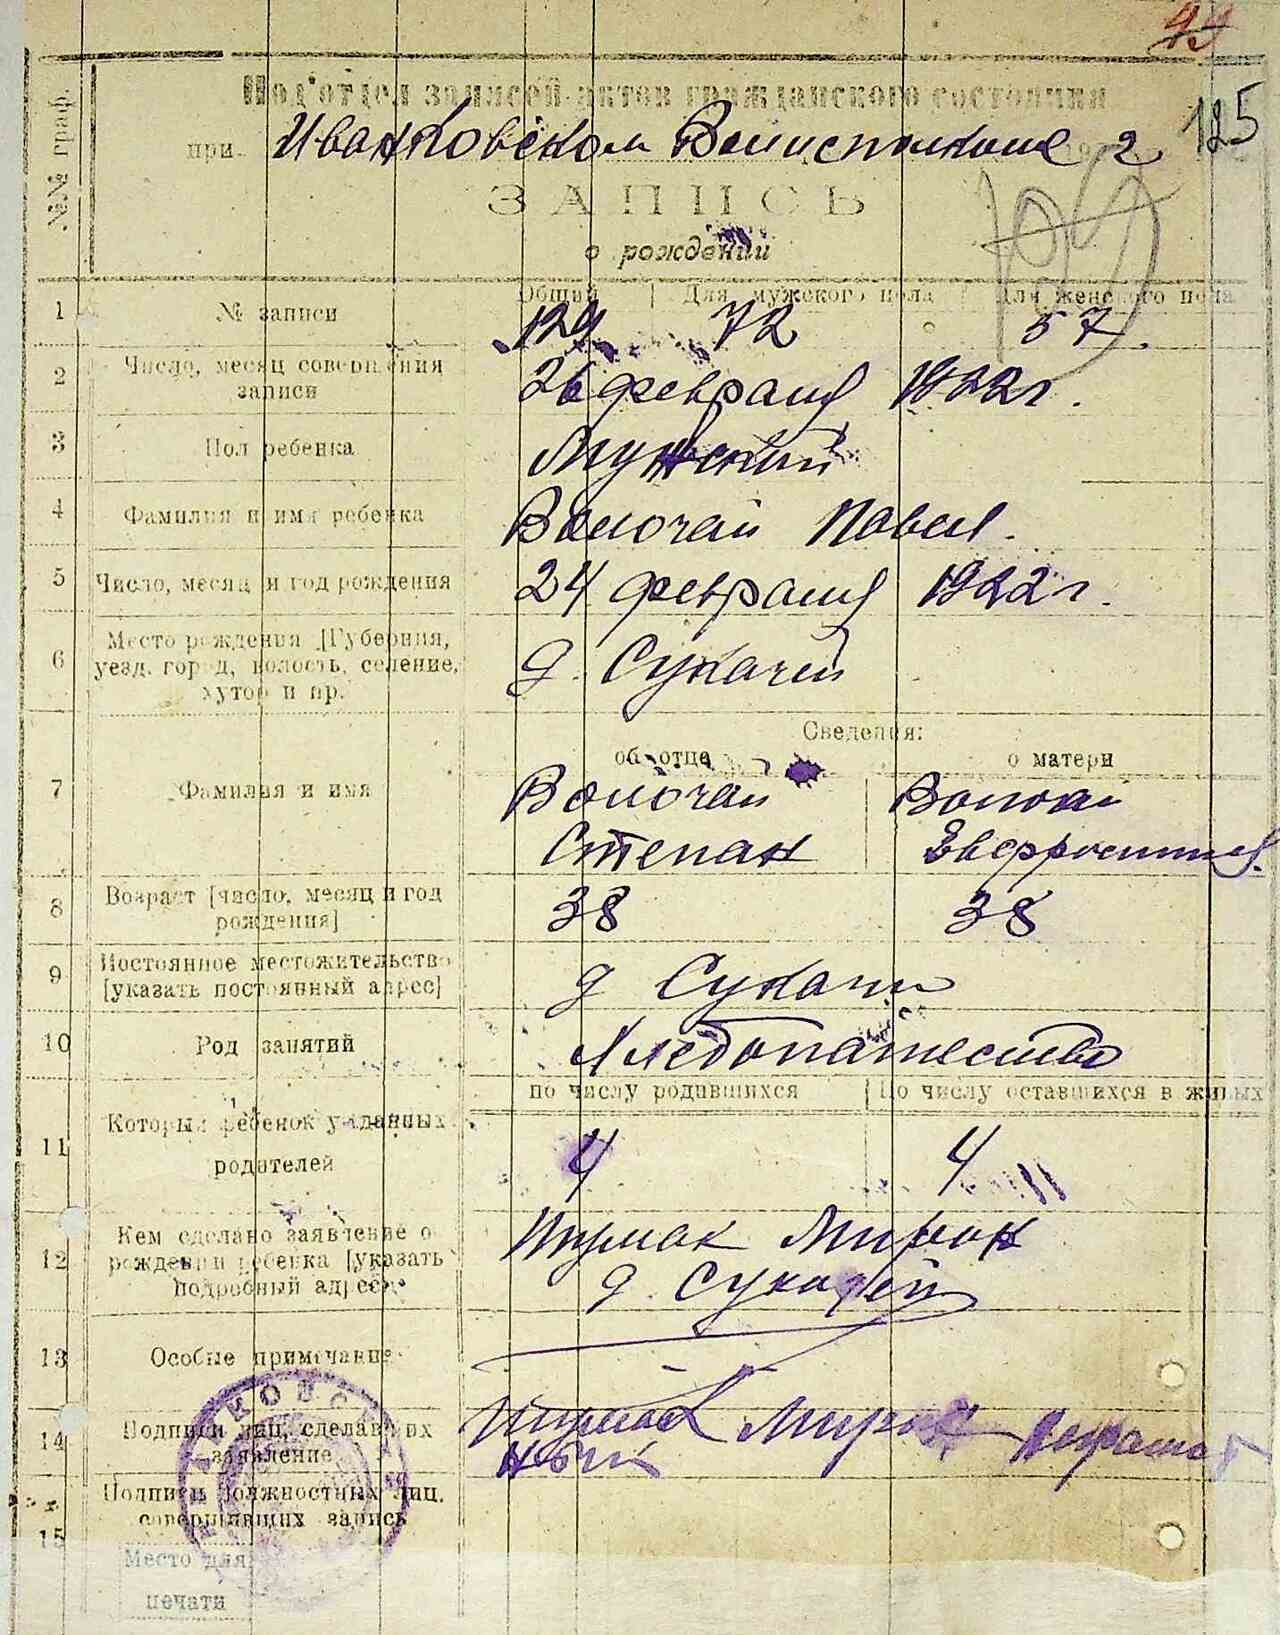 125
№№ граф.
Под'отдел записей актов гражданского состояния
при Иванковском Волисполкоме 2
ЗАПИСЬ
о рождении
Общий Для мужского пола Для женского пола
1 № записи 129 72 57
2 Число, месяц совершения записи 26 февраля 1922 г.
3 Пол ребенка Мужский
4 Фамилия и имя ребенка Волочай Павел.
5 Число, месяц и год рождения 24 февраля 1922 г.
6 Место рождения [Губерния,
уезд. город, волость, селение,
хутор и пр. д. Сукачей
Сведения:
об отце о матери
7 Фамилия и имя Волочай
Степан
8 Возраст [число, месяц и год
рождения] 38 38
9 Постоянное местожительство
[указать постоянный адрес] д Сукачи
10 Род занятий Хлебопашество
по числу родившихся По числу оставшихся в живых
11 Который ребенок у данных
родителей 4 4
12 Кем сделано заявление о
рождении ребенка [указать
подробный адрес] Мирон
д. Сукачей
13 Особые примечания
14 Подписи лиц, сделавших
заявление Мирон
15 Подписи должностных лиц.
совершивших запись
Место для
печати